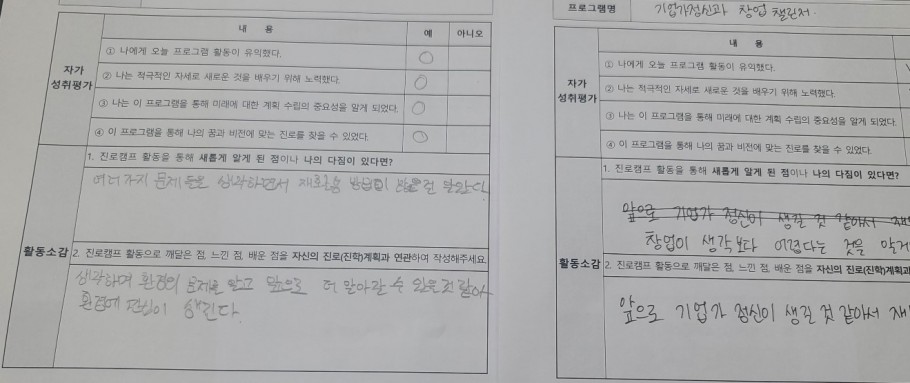 내 용 예 아니오
자가
성취평가
① 나에게 오늘 프로그램 활동이 유익했다. ○
② 나는 적극적인 자세로 새로운 것을 배우기 위해 노력했다. ○
③ 나는 이 프로그램을 통해 미래에 대한 계획 수립의 중요성을 알게 되었다. ○
④ 이 프로그램을 통해 나의 꿈과 비전에 맞는 진로를 찾을 수 있었다. ○
활동소감
1. 진로캠프 활동을 통해 새롭게 알게 된 점이나 나의 다짐이 있다면?
여러가지 문제들을 생각하면서 많은 걸 알았다
2. 진로캠프 활동으로 깨달은 점, 느낀 점, 배운 점을 자신의 진로(진학)계획과 연관하여 작성해주세요
생각하며 환경의 문제을 알고 앞으로 더 알아갈 수 있을것 같아
환경에 생긴다.
프로그램명 기업가정신과 창업 챌린저.
내 용
자가
성취평가
① 나에게 오늘 프로그램 활동이 유익했다.
② 나는 적극적인 자세로 새로운 것을 배우기 위해 노력했다.
③ 나는 이 프로그램을 통해 미래에 대한 계획 수립의 중요성을 알게 되었다.
④ 이 프로그램을 통해 나의 꿈과 비전에 맞는 진로를 찾을 수 있었다.
활동소감
1. 진로캠프 활동을 통해 새롭게 알게 된 점이나 나의 다짐이 있다면?
앞으로 기업가 정신이 생길 것 같아서 재
창업이 생각보다 어렵다는 것을 알게
2. 진로캠프 활동으로 깨달은 점, 느낀 점, 배운 점을 자신의 진로(진학)계획
앞으로 기업가 정신이 생길 것 같아서 재